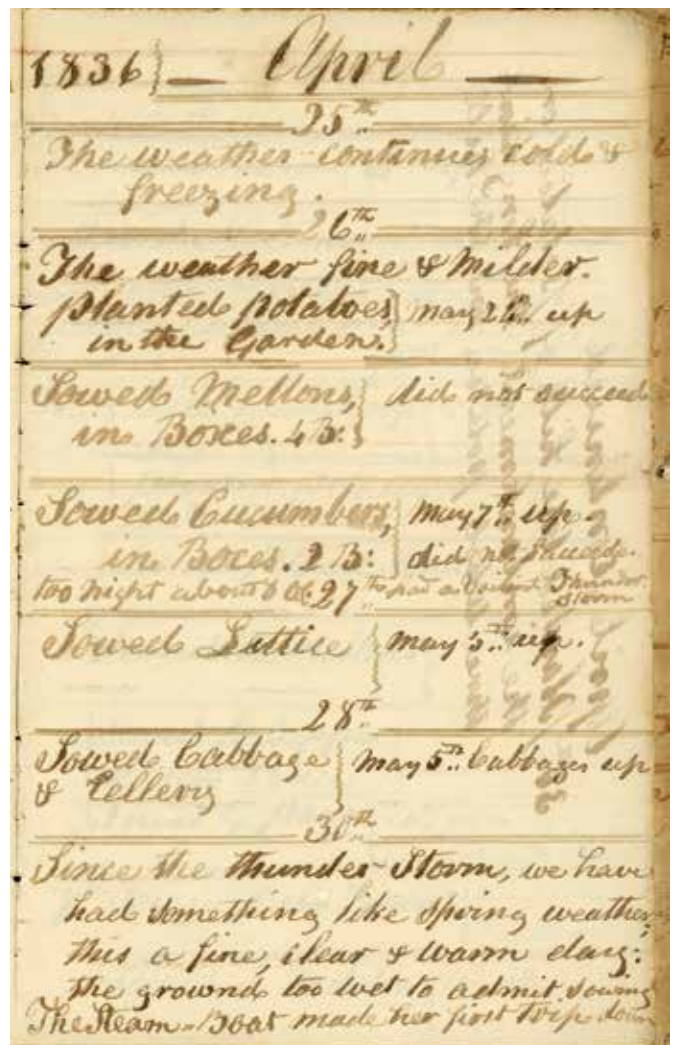 1836} — April —
25th
The weather continues cold &
freezing.
26th
The weather fine & Milder.
planted potatoes} may 26th up
in the Garden.
Sowed Mellons,} did not succeed
in Boxes. 4 B:
Sowed Cucumbers,} May 7th up.
in Boxes. 2 B: did not succeed.
too night about 8 oC. 27th had a Thunder
Storm
Sowed Lattice } may 5th up.
28th
Sowed Cabbage } may 5th Cabbages up
& Cellery
30th
Since the thunder Storm, we have
had something like Spring weather;
this a fine, clear & warm day:
the ground too wet to admit sowing
The Steam-Boat made her first trip down